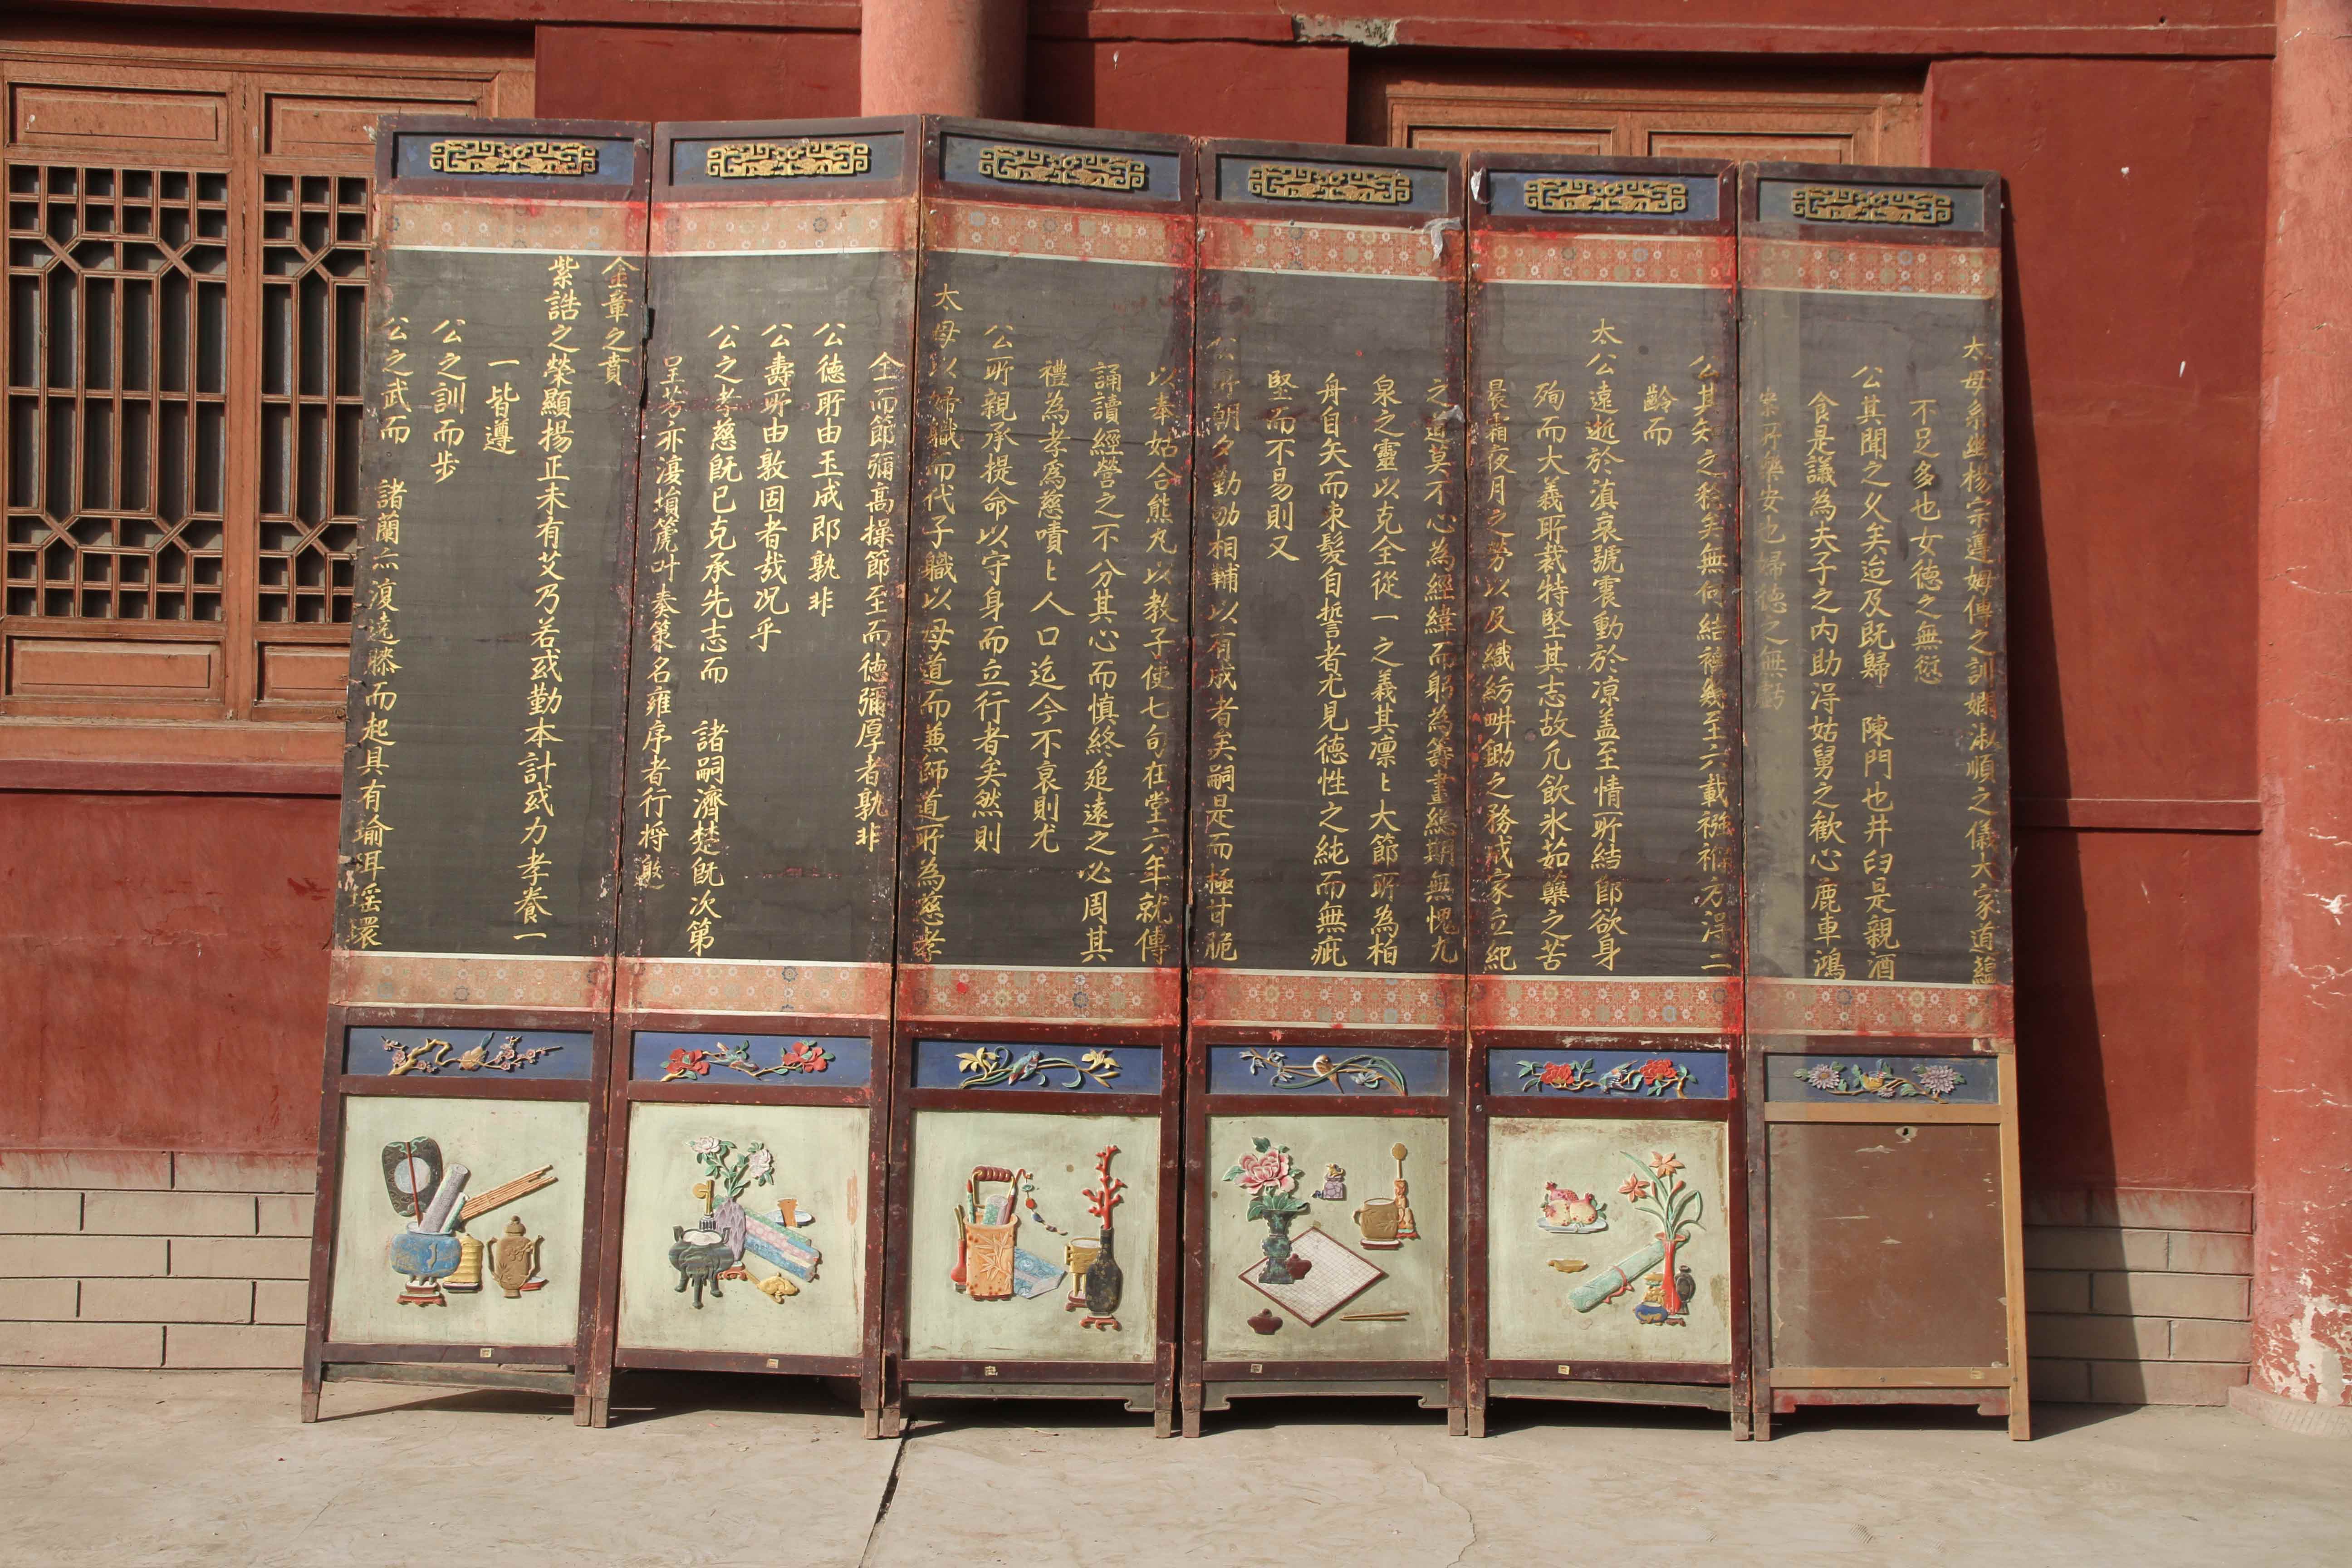 太母系繼楊宗遵姆傳之訓嫻淑順之儀大家道蘊
不足多也女德之無愆
公其聞之久矣迨及既歸 陳門也井臼是親酒
食是議為夫子之內助淂姑舅之歡心鹿車鴻
案所樂安也婦德之無虧
公其知之稔矣無何結褵幾至六載襁褓方淂二
齡而
太公遠逝於滇哀號震動於凉盖至情所結卽欲身
殉而大義所裁特堅其志故凢飲氷茹蘗之苦
晨霜夜月之勞以及織紡畊鋤之務成家立紀
之道莫不心為經緯而躬為籌畫總期無愧九
泉之靈以克全從一之義其凛〻大節所為柏
舟自矢而束髮自誓者尤見德性之純而無疵
堅而不易則又
朝夕勤劬相輔以有成者矣嗣是而極甘脆
以奉姑合熊丸以教子使七旬在堂六年就傅
誦讀經營之不分其心而慎終追遠之必周其
禮為孝爲慈嘖〻人口迄今不衰則尤
公所親承提命以守身而立行者矣然則
太母以婦職而代子職以母道而兼師道所為慈孝
全而節彌高操節至而德彌厚者孰非
公德所由玉成郎孰非
公壽所由敦固者哉况乎
公之孝慈旣已克承先志而 諸嗣濟楚旣次第
呈芳亦澓塤篪叶奏箓名雍序者行将邀
金章之賁
紫誥之榮顯揚正未有艾乃若或勤本計或力孝養一
一皆遵
公之訓而步
公之武而 諸蘭亦澓遶膝而起具有瑜珥瑶環